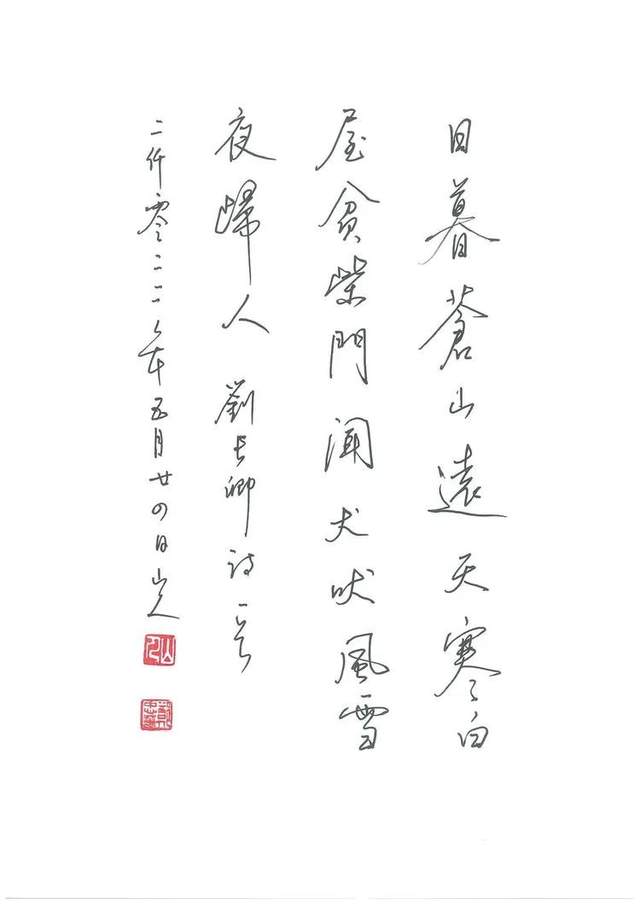 日暮蒼山遠天寒白
屋貧柴門聞犬吠風雪
夜歸人 劉長卿詩一首
二仟零年五月廿四日山人
山人